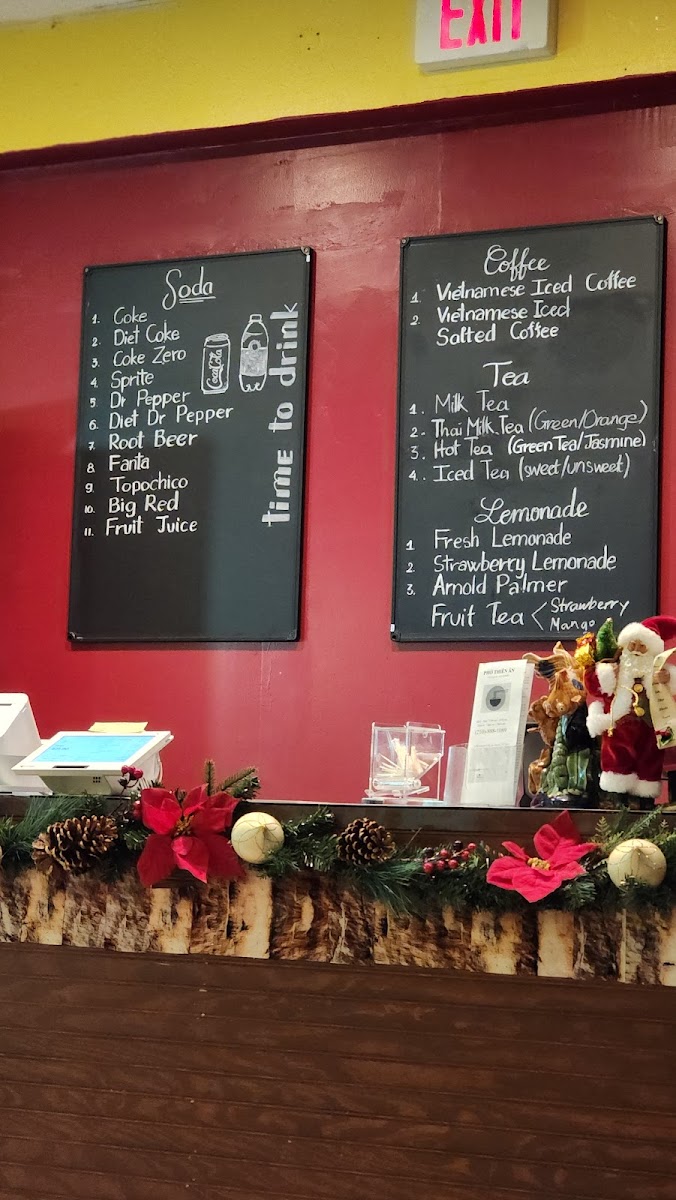 EXIT
Soda
1. Coke
2. Diet Coke
3. Coke Zero
4. Sprite
5 Dr Pepper
6. Diet Dr Pepper
7. Root Beer
8 Fanta
9. Topochico
10. Big Red
11. Fruit Juice
CocaCola
time to drink
Coffee
1. Vietnamese Iced Coffee
2. Vietnamese Iced
Salted Coffee
Tea
1. Milk Tea
2. Thai Milk Tea (Green/Orange)
3. Hot Tea (Green Tea/Jasmine)
4. Iced Tea (sweet/unsweet)
Lemonade
1 Fresh Lemonade
2. Strawberry Lemonade
3. Arnold Palmer
Fruit Tea < Strawberry
Mango
PHỞ THIÊN ÂN